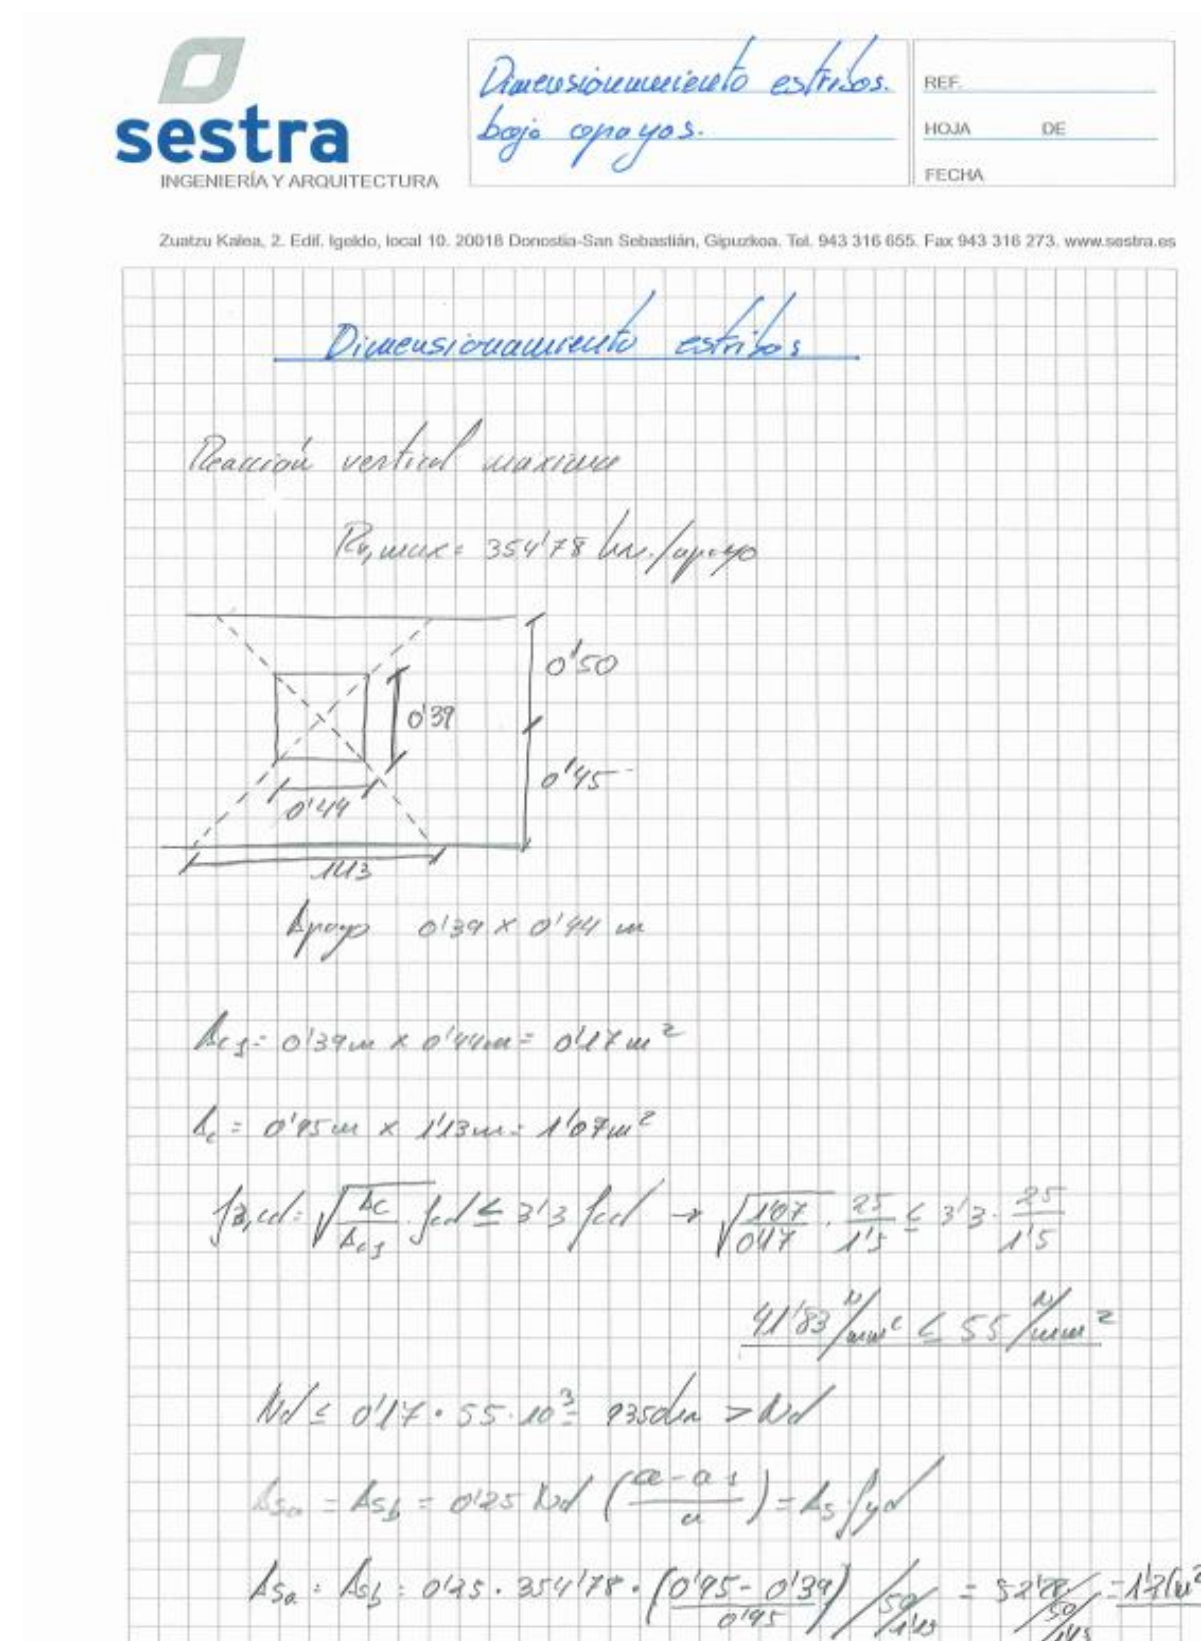 sestra
INGENIERÍA Y ARQUITECTURA
Dimensionamiento estribos.
bajo apoyos.
REF.
HOJA DE
FECHA
Zuatzu Kalea, 2. Edif. Igeldo, local 10. 20018 Donostia-San Sebastián, Gipuzkoa. Tel. 943 316 655. Fax 943 316 273. www.sestra.es
Dimensionamiento estribos
Reacción vertical maxima
Rv,max = 354'78 kN./apoyo
0'50
0'39
0'45
0'44
1'13
Apoyo 0'39 x 0'44 m
Ac1 = 0'39m x 0'44m = 0'17m²
Ac = 0'95m x 1'13m = 1'07m²
f3,cd = √(Ac/Ac1) · fcd ≤ 3'3 fcd → √(1'07/0'17) · 25/1'5 ≤ 3'3 · 25/1'5
41'83 N/mm² ≤ 55 N/mm²
Nd ≤ 0'17 · 55 · 10³ = 9350kN > Nd
Asa = Asb = 0'25 Nd ((a - a1)/a) = As fyd
Asa = Asb = 0'25 · 354'78 · ((0'95 - 0'39)/0'95) / 50/1'15 = 52'28 / 50/1'15 =